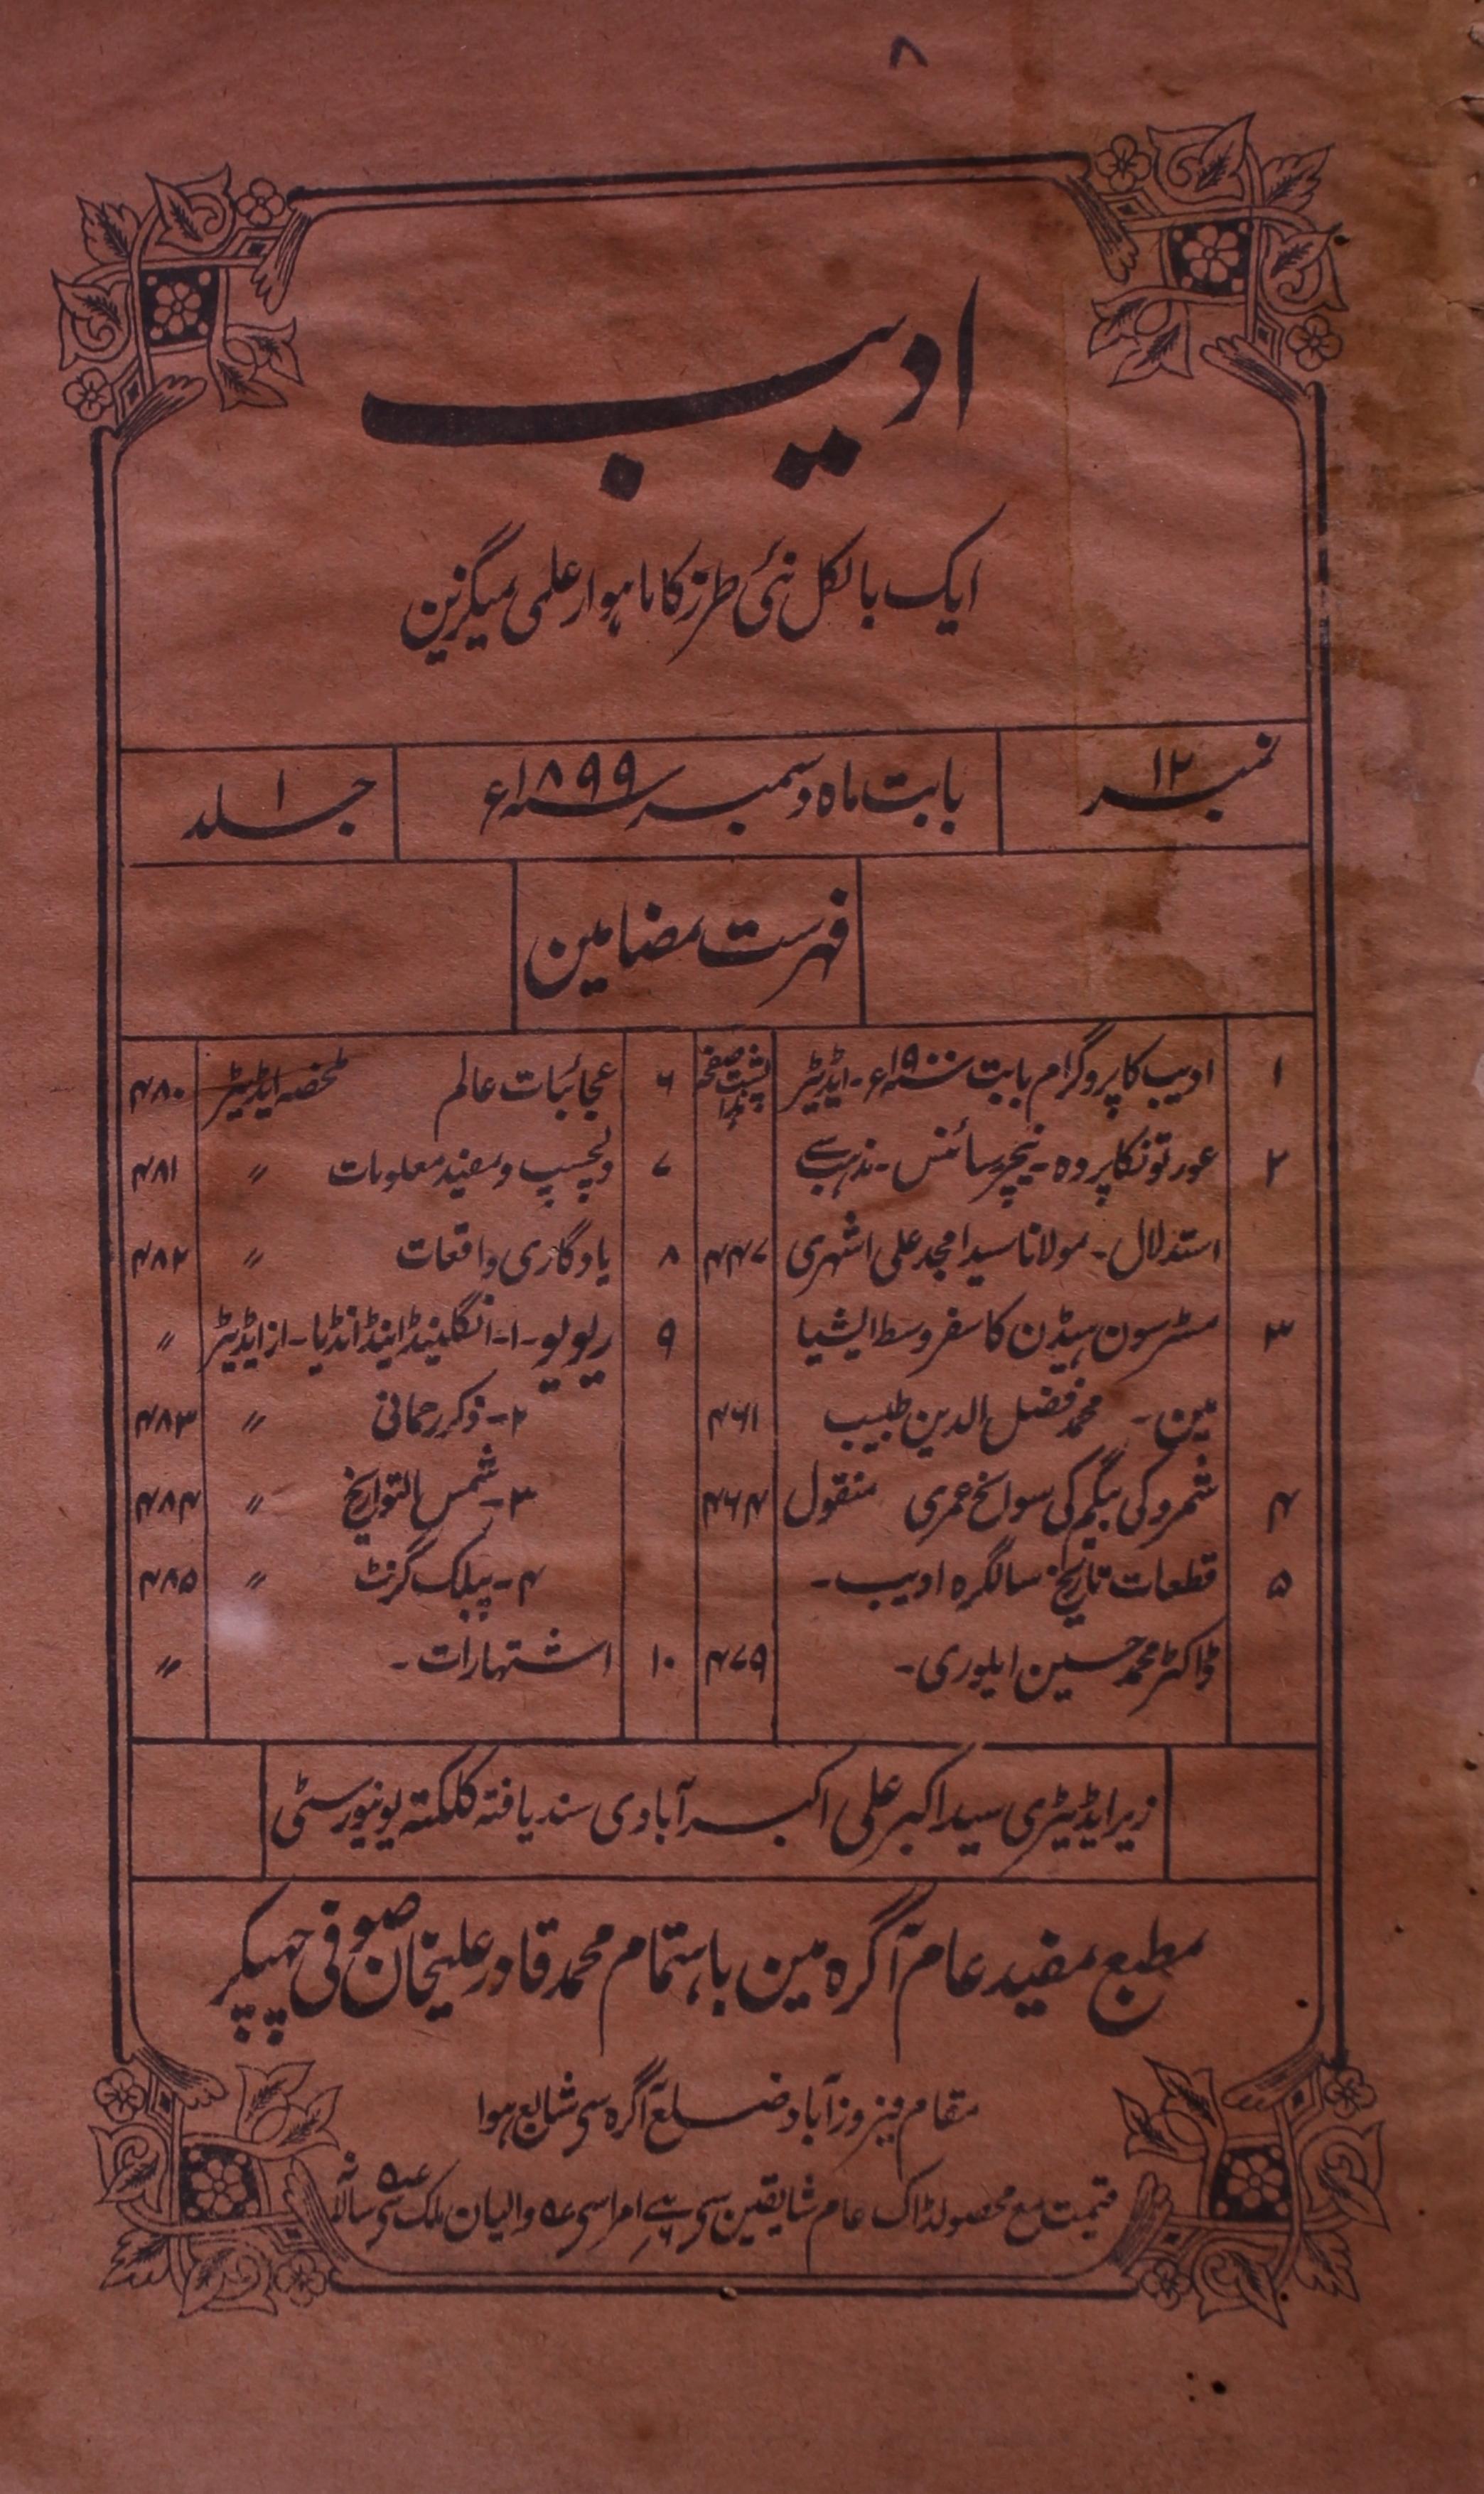 ۸
ادیب
ایک بالکل نئی طرز کا ماہوار علمی میگزین
نمبر ۱۲
بابت ماہ دسمبر سنہ ۱۸۹۹ء
جلد ۱
فہرست مضامین
۱ ادیب کا پروگرام بابت سنہ ۱۹۰۰ء - ایڈیٹر پشت صفحہ ہذا
۲ عورتونکا پردہ - نیچر سائنس - مذہب سے
استدلال - مولانا سید امجد علی اشہری ۴۴۷
۳ مسٹر سون ہیڈن کا سفر وسط ایشیا
مین - محمد فضل الدین طبیب ۴۶۱
۴ شمرو کی بیگم کی سوانح عمری منقول ۴۶۴
۵ قطعات تاریخ سالگرہ ادیب -
ڈاکٹر محمد حسین ایلوری - ۴۷۹
۶ عجائبات عالم ملخصہ ایڈیٹر ۴۸۰
۷ دلچسپ و مفید معلومات " ۴۸۱
۸ یادگاری واقعات " ۴۸۲
۹ ریویو - ۱- انگلینڈ اینڈ انڈیا - از ایڈیٹر "
۲- ذکر رحمانی " ۴۸۳
۳- شمس التواریخ " ۴۸۴
۴- پبلک گزٹ " ۴۸۵
۱۰ اشتہارات - "
زیر ایڈیٹری سید اکبر علی اکبرآبادی سند یافتہ کلکتہ یونیورسٹی
مطبع مفید عام آگرہ مین باہتمام محمد قادر علیخان صوفی چھپکر
مقام فیروزآباد ضلع آگرہ سی شایع ہوا
قیمت مع محصولڈاک عام شایقین سی امرا سی والیان ملک سی سالانہ